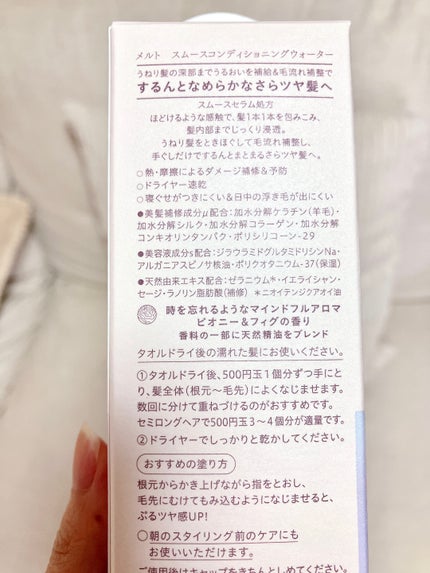 メルト　スムースコンディショニングウォーター
うねり髪の深部までうるおいを補給&毛流れ補整で
するんとなめらかなさらツヤ髪へ
スムースセラム処方
ほどけるような感触で、髪1本1本を包みこみ、
髪内部までじっくり浸透。
うねり髪をときほぐして毛流れ補整し、
手ぐしだけでするんとまとまるさらツヤ髪へ。
○熱・摩擦によるダメージ補修&予防
○ドライヤー速乾
○寝ぐせがつきにくい&日中の浮き毛が出にくい
●美髪補修成分μ配合：加水分解ケラチン(羊毛)・
加水分解シルク・加水分解コラーゲン・加水分解
コンキオリンタンパク・ポリシリコーン-29
●美容液成分s配合：ジラウラミドグルタミドリシンNa・
アルガニアスピノサ核油・ポリクオタニウム-37(保湿)
●天然由来エキス配合：ゼラニウム*・イエライシャン・
セージ・ラノリン脂肪酸(補修)　*ニオイテンジクアオイ油
時を忘れるようなマインドフルアロマ
ピオニー&フィグの香り
香料の一部に天然精油をブレンド
タオルドライ後の濡れた髪にお使いください。
①タオルドライ後、500円玉1個分ずつ手にと
り、髪全体(根元〜毛先)によくなじませます。
数回に分けて重ねづけるのがおすすめです。
セミロングヘアで500円玉3〜4個分が適量です。
②ドライヤーでしっかりと乾かしてください。
おすすめの塗り方
根元からかき上げながら指をとおし、
毛先にむけてもみ込むようになじませると、
ぷるツヤ感UP!
○朝のスタイリング前のケアにも
お使いいただけます。
ご使用後はキャップをきちんとしめてください。